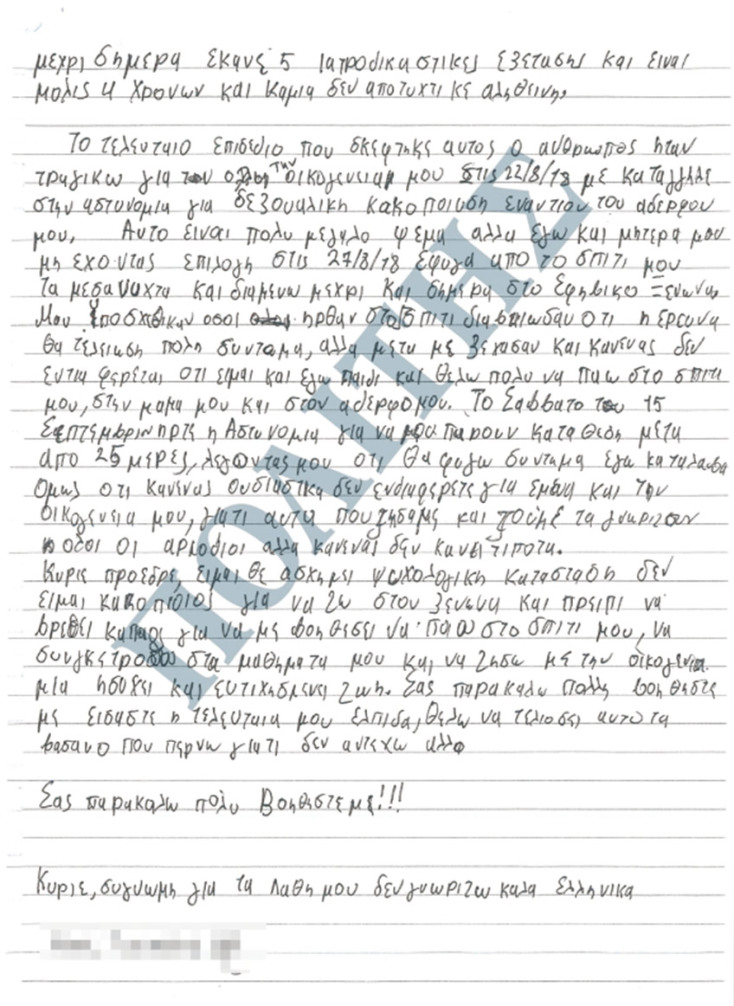 μεχρι σημερα εκανε 5 ιατροδικαστικες εξετασης και ειναι
μολις 4 χρονων και καμια δεν αποτυχτικε αληθεινη.
Το τελευταιο επισεδιο που σκεφτηκε αυτος ο ανθρωπος ηταν
τραγικω για την οικογενειαμ μου στις 22/8/18 με καταγγελε
στην αστυνομια για σεξουαλικη κακοποιυση εναντιον του αδερφου
μου. Αυτο ειναι πολυ μεγαλο ψεμα αλλα εγω και μητερα μου
μη εχοντας επιλογη στις 27/8/18 εφυγα απο το σπιτι μου
τα μεσανυχτα και διαμενω μεχρι και σημερα στο Εφηβικο Ξενωνα.
Μου υποσχεθικαν οσοι ηρθαν στο σπιτι διαβαιωσαν οτι η ερευνα
θα τελειωση πολη συντομα, αλλα μετα με ξεχασαν και κανενας δεν
εντιαφερεται οτι ειμαι και εγω παιδι και θελω πολυ να παω στο σπιτι
μου, στην μαμα μου και στον αδερφο μου. Το Σαββατο 15
Σεπτεμβρη ηρτε η Αστυνομια για να μου παρουν καταθεση μετα
απο 25 μερες, λεγοντας μου οτι θα φυγω συντομα εγω καταλαβα
ομως οτι κανενας ουσιαστικα δεν ενδιαφερετε για εμενα και την
οικογενεια μου, γιατι αυτα που ζησαμε και ζουμε τα γνωριζουν
οσοι οι αρμοδιοι αλλα κανενας δεν κανει τιποτα.
Κυριε προεδρε ειμαι θε ασκημει ψυχολογικη κατασταση δεν
ειμαι κακοπιοιος για να ζω στον ξενωνα και πρεπι να
βρεθει καπιος για να με βοηθεσει να παω στο σπιτι μου, να
συνγκετροθω στα μαθηματα μου και να ζησω με την οικογενια
μια ησυχει και ευτιχησμενει ζωη. Σας παρακαλω πολλη βοηθηστε
με εισαστε η τελευταια μου ελπιδα, θελω να τελιοσει αυτο τα
βασανο που περνω γιατι δεν αντεχω αλλο
Σας παρακαλω πολυ Βοηθηστε με!!!
Κυριε, συγνωμη για τα λαθη μου δεν γνωριζω καλα ελληνικα
ΠΟΛΙΤΗΣ